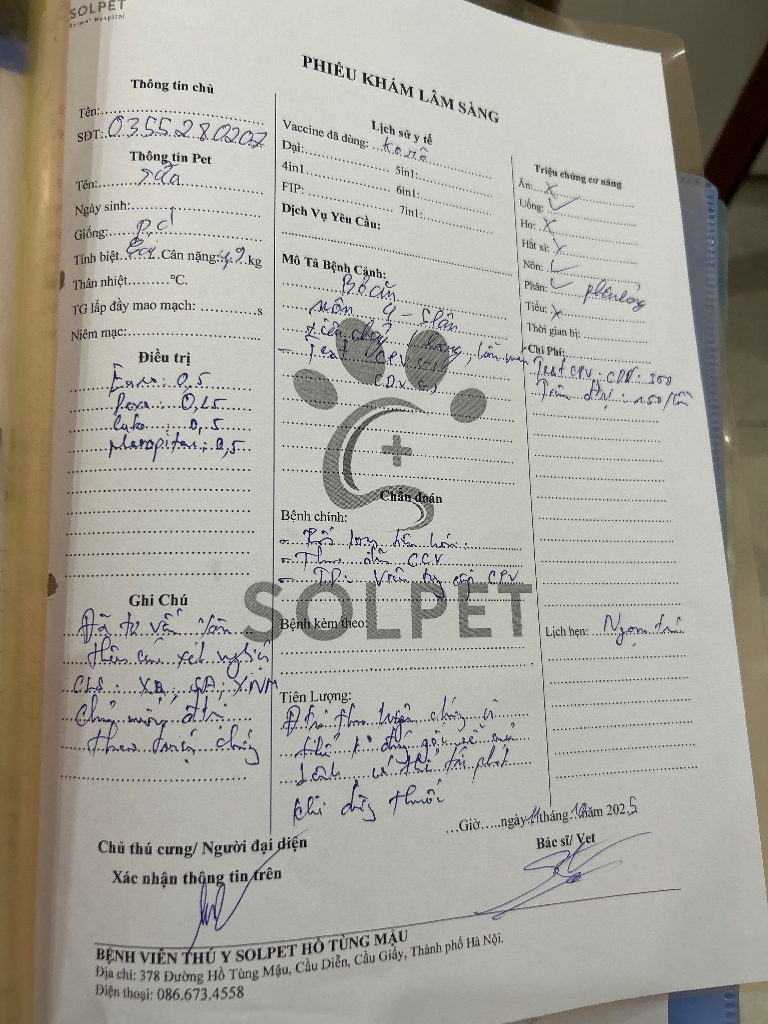 SOLPET
Animal Hospital
PHIẾU KHÁM LÂM SÀNG
Thông tin chủ
Tên:
SĐT: 0355280207
Thông tin Pet
Tên: Sữa
Ngày sinh:
Giống: P.d
Tính biệt: Cái Cân nặng: 4,9 kg
Thân nhiệt °C.
TG lấp đầy mao mạch: s
Niêm mạc:
Điều trị
: 0,5
: 0,25
: 0,5
Maropitan: 0,5
Ghi Chú
Đã tư vấn làm
thêm các xét nghiệm
CLS: XQ, SA, XNM
Chủ muốn đtrị
theo triệu chứng
Lịch sử y tế
Vaccine đã dùng: Ko rõ
Dại: 5in1:
4in1 6in1:
FIP: 7in1:
Dịch Vụ Yêu Cầu:
Mô Tả Bệnh Cảnh:
Bỏ ăn
nôn 4-5 lần
tiêu chảy
- Test CPV (-)
CDV (-)
Chẩn đoán
Bệnh chính:
- Rối loạn tiêu hóa
- Theo dõi CCV
CPV
Bệnh kèm theo:
Tiên Lượng:
chứng
có thể tái phát
khi dừng thuốc
Triệu chứng cơ năng
Ăn: X
Uống: ✓
Ho: X
Hắt xì: X
Nôn: ✓
Phân: ✓ phân lỏng
Tiểu: X
Thời gian bị:
Chi Phí:
Test CPV. CDV: 300
Tiêm đtrị: 150/lần
Lịch hẹn:
SOLPET
…Giờ…..ngày 11 tháng năm 2025
Chủ thú cưng/ Người đại diện
Xác nhận thông tin trên
Bác sĩ/ Vet
BỆNH VIÊN THÚ Y SOLPET HỒ TÙNG MẬU
Địa chỉ: 378 Đường Hồ Tùng Mậu, Cầu Diễn, Cầu Giấy, Thành phố Hà Nội.
Điện thoại: 086.673.4558